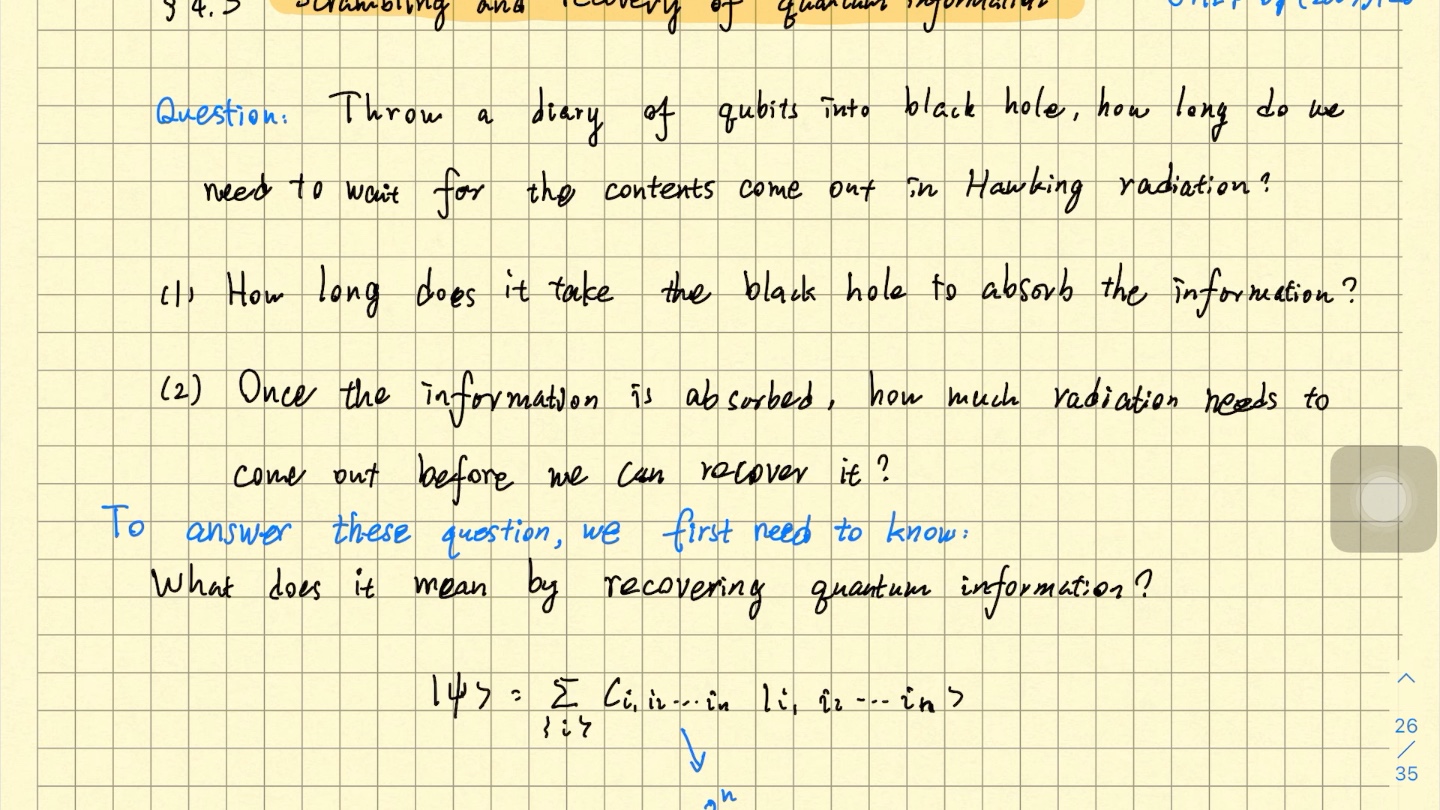 § 4.3 Scrambling and recovery of quantum information
Question: Throw a diary of qubits into black hole, how long do we
need to wait for the contents come out in Hawking radiation?
(1) How long does it take the black hole to absorb the information?
(2) Once the information is absorbed, how much radiation needs to
come out before we can recover it?
To answer these question, we first need to know:
What does it mean by recovering quantum information?
|ψ> = Σ C i₁ i₂ ... iₙ |i₁ i₂ ... iₙ>
{i}
2ⁿ
26
/
35